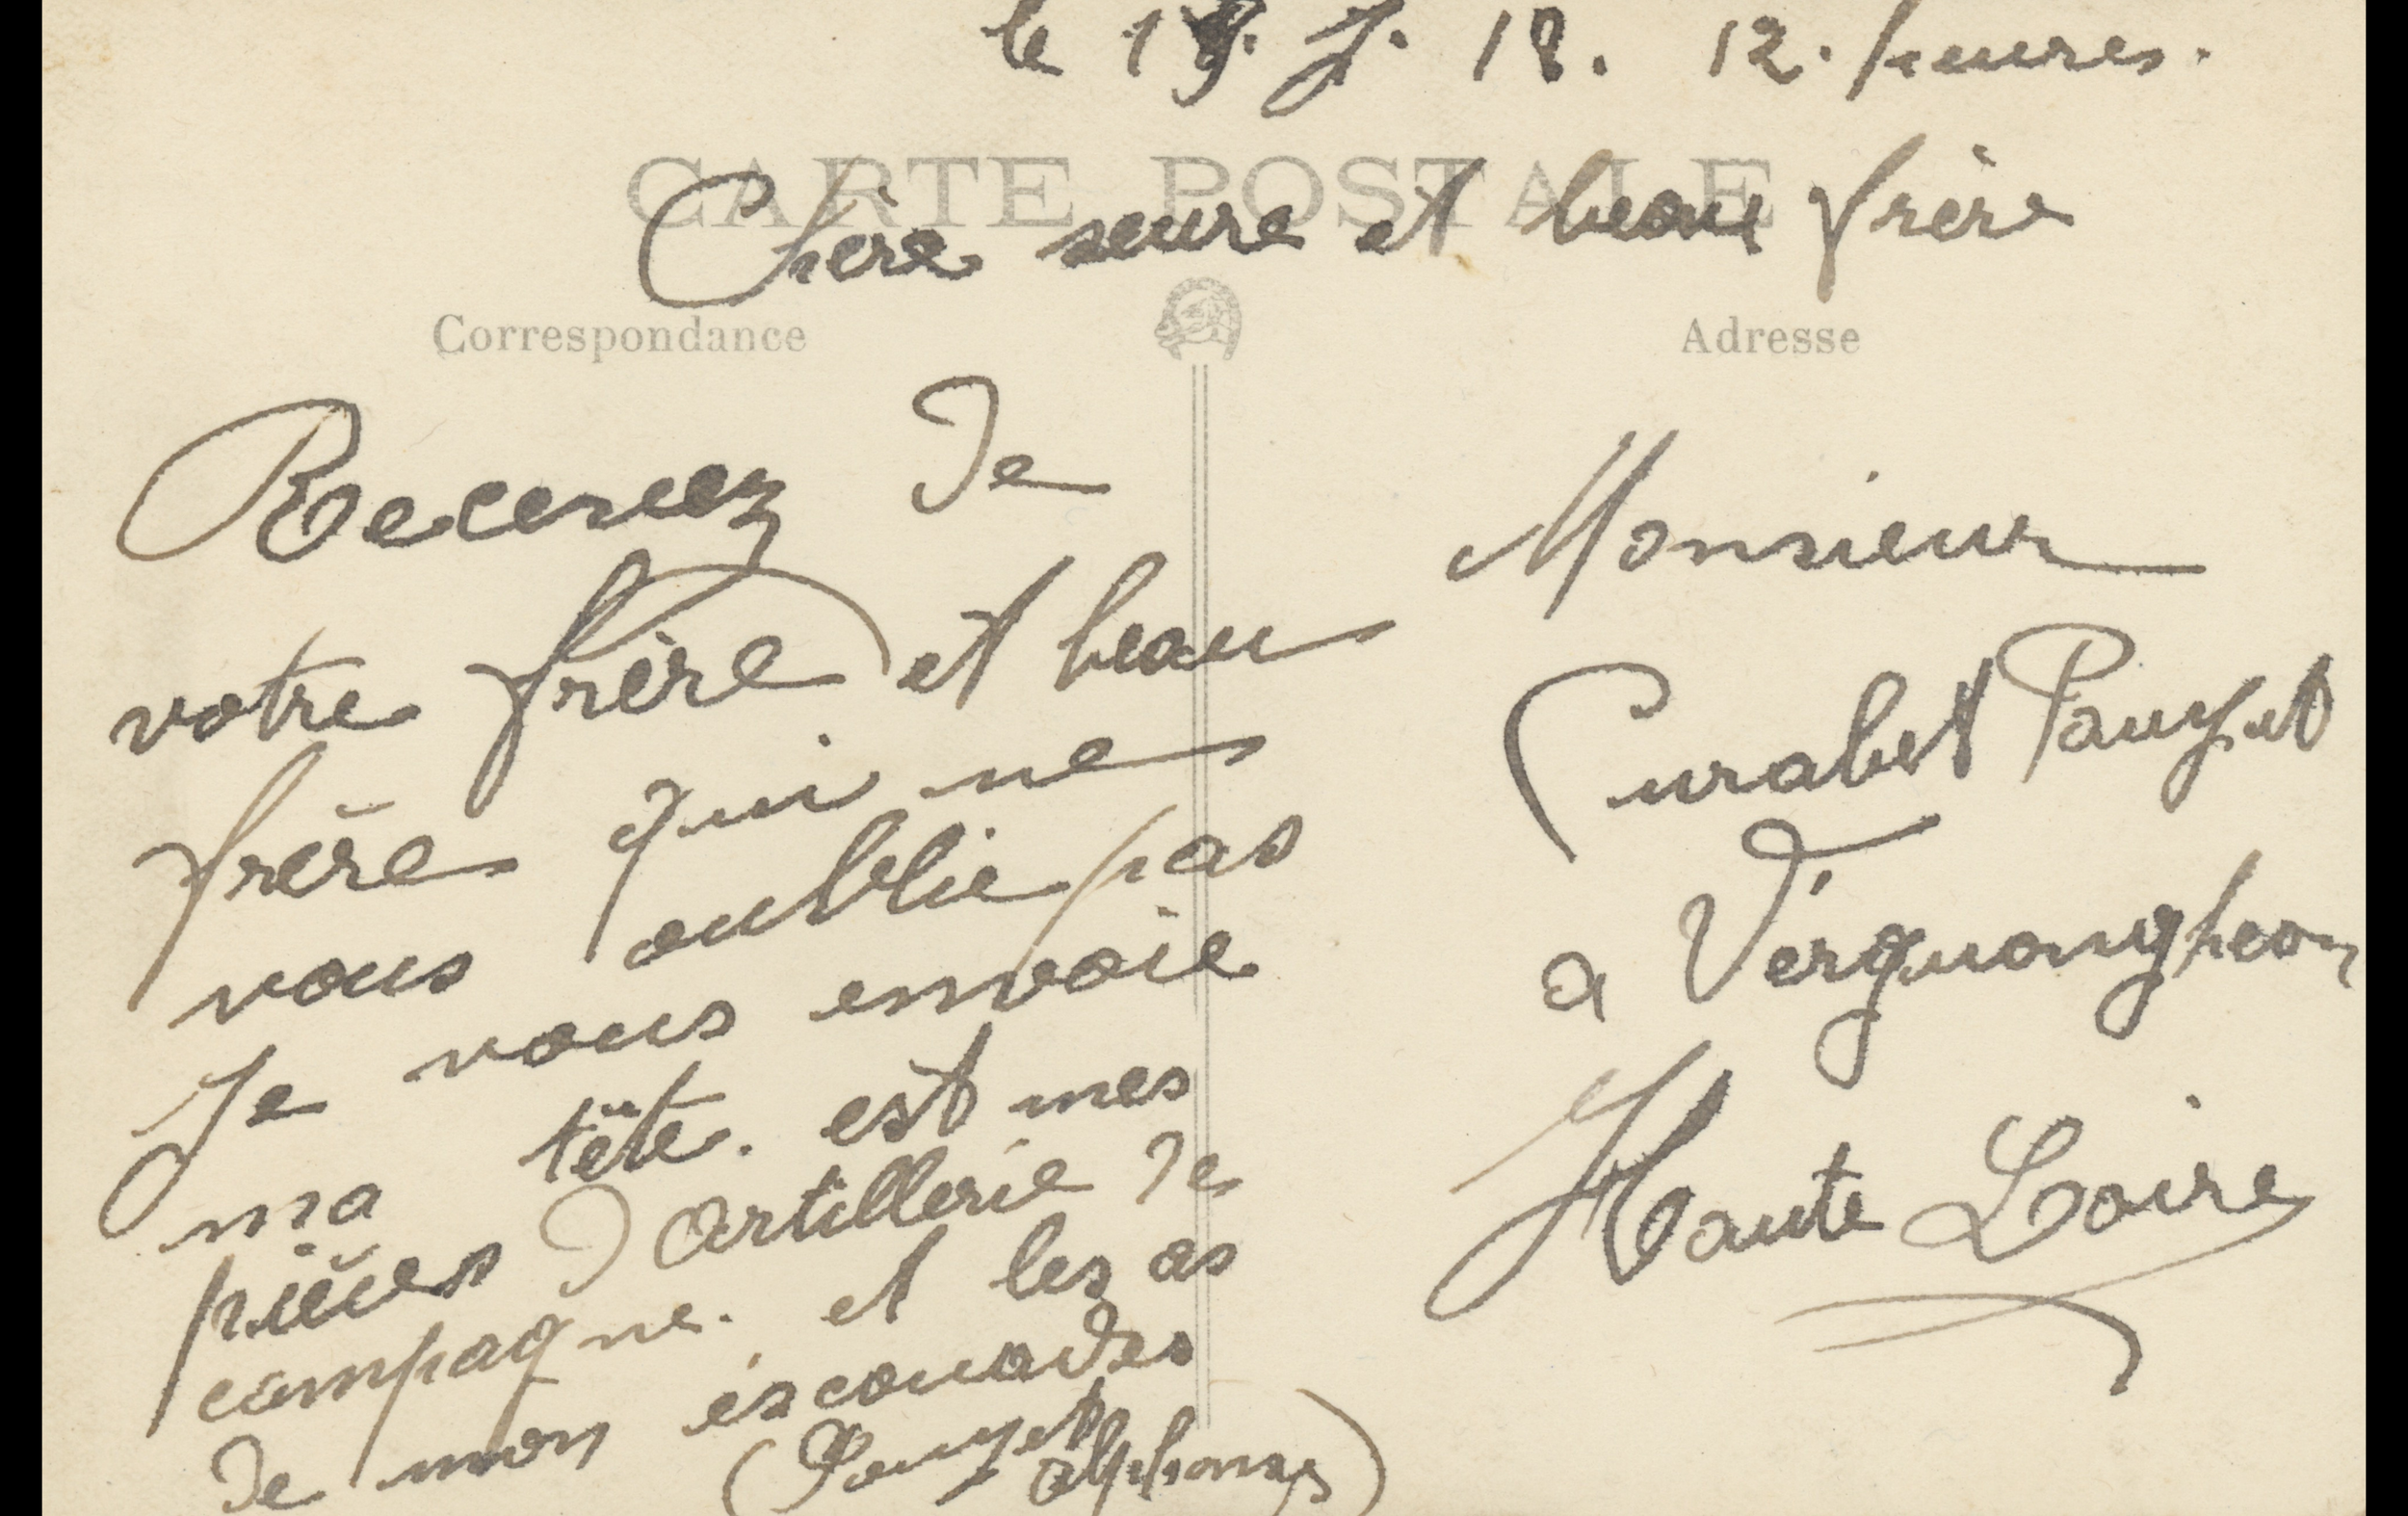 le 19. J. 18. 12. heures.
CARTE POSTALE
Chère seure et beau frère
Correspondance
Adresse
Recevez de
votre frère et beau
frère qui ne
vous oublie pas
Je vous envoie
ma tête. est mes
pièces d artillerie de
campagne. et les as
de mon éscouades
(Pouyet
alphonse)
Monsieur
Curabet Pauyet
a Vergnongheon
Haute Loire